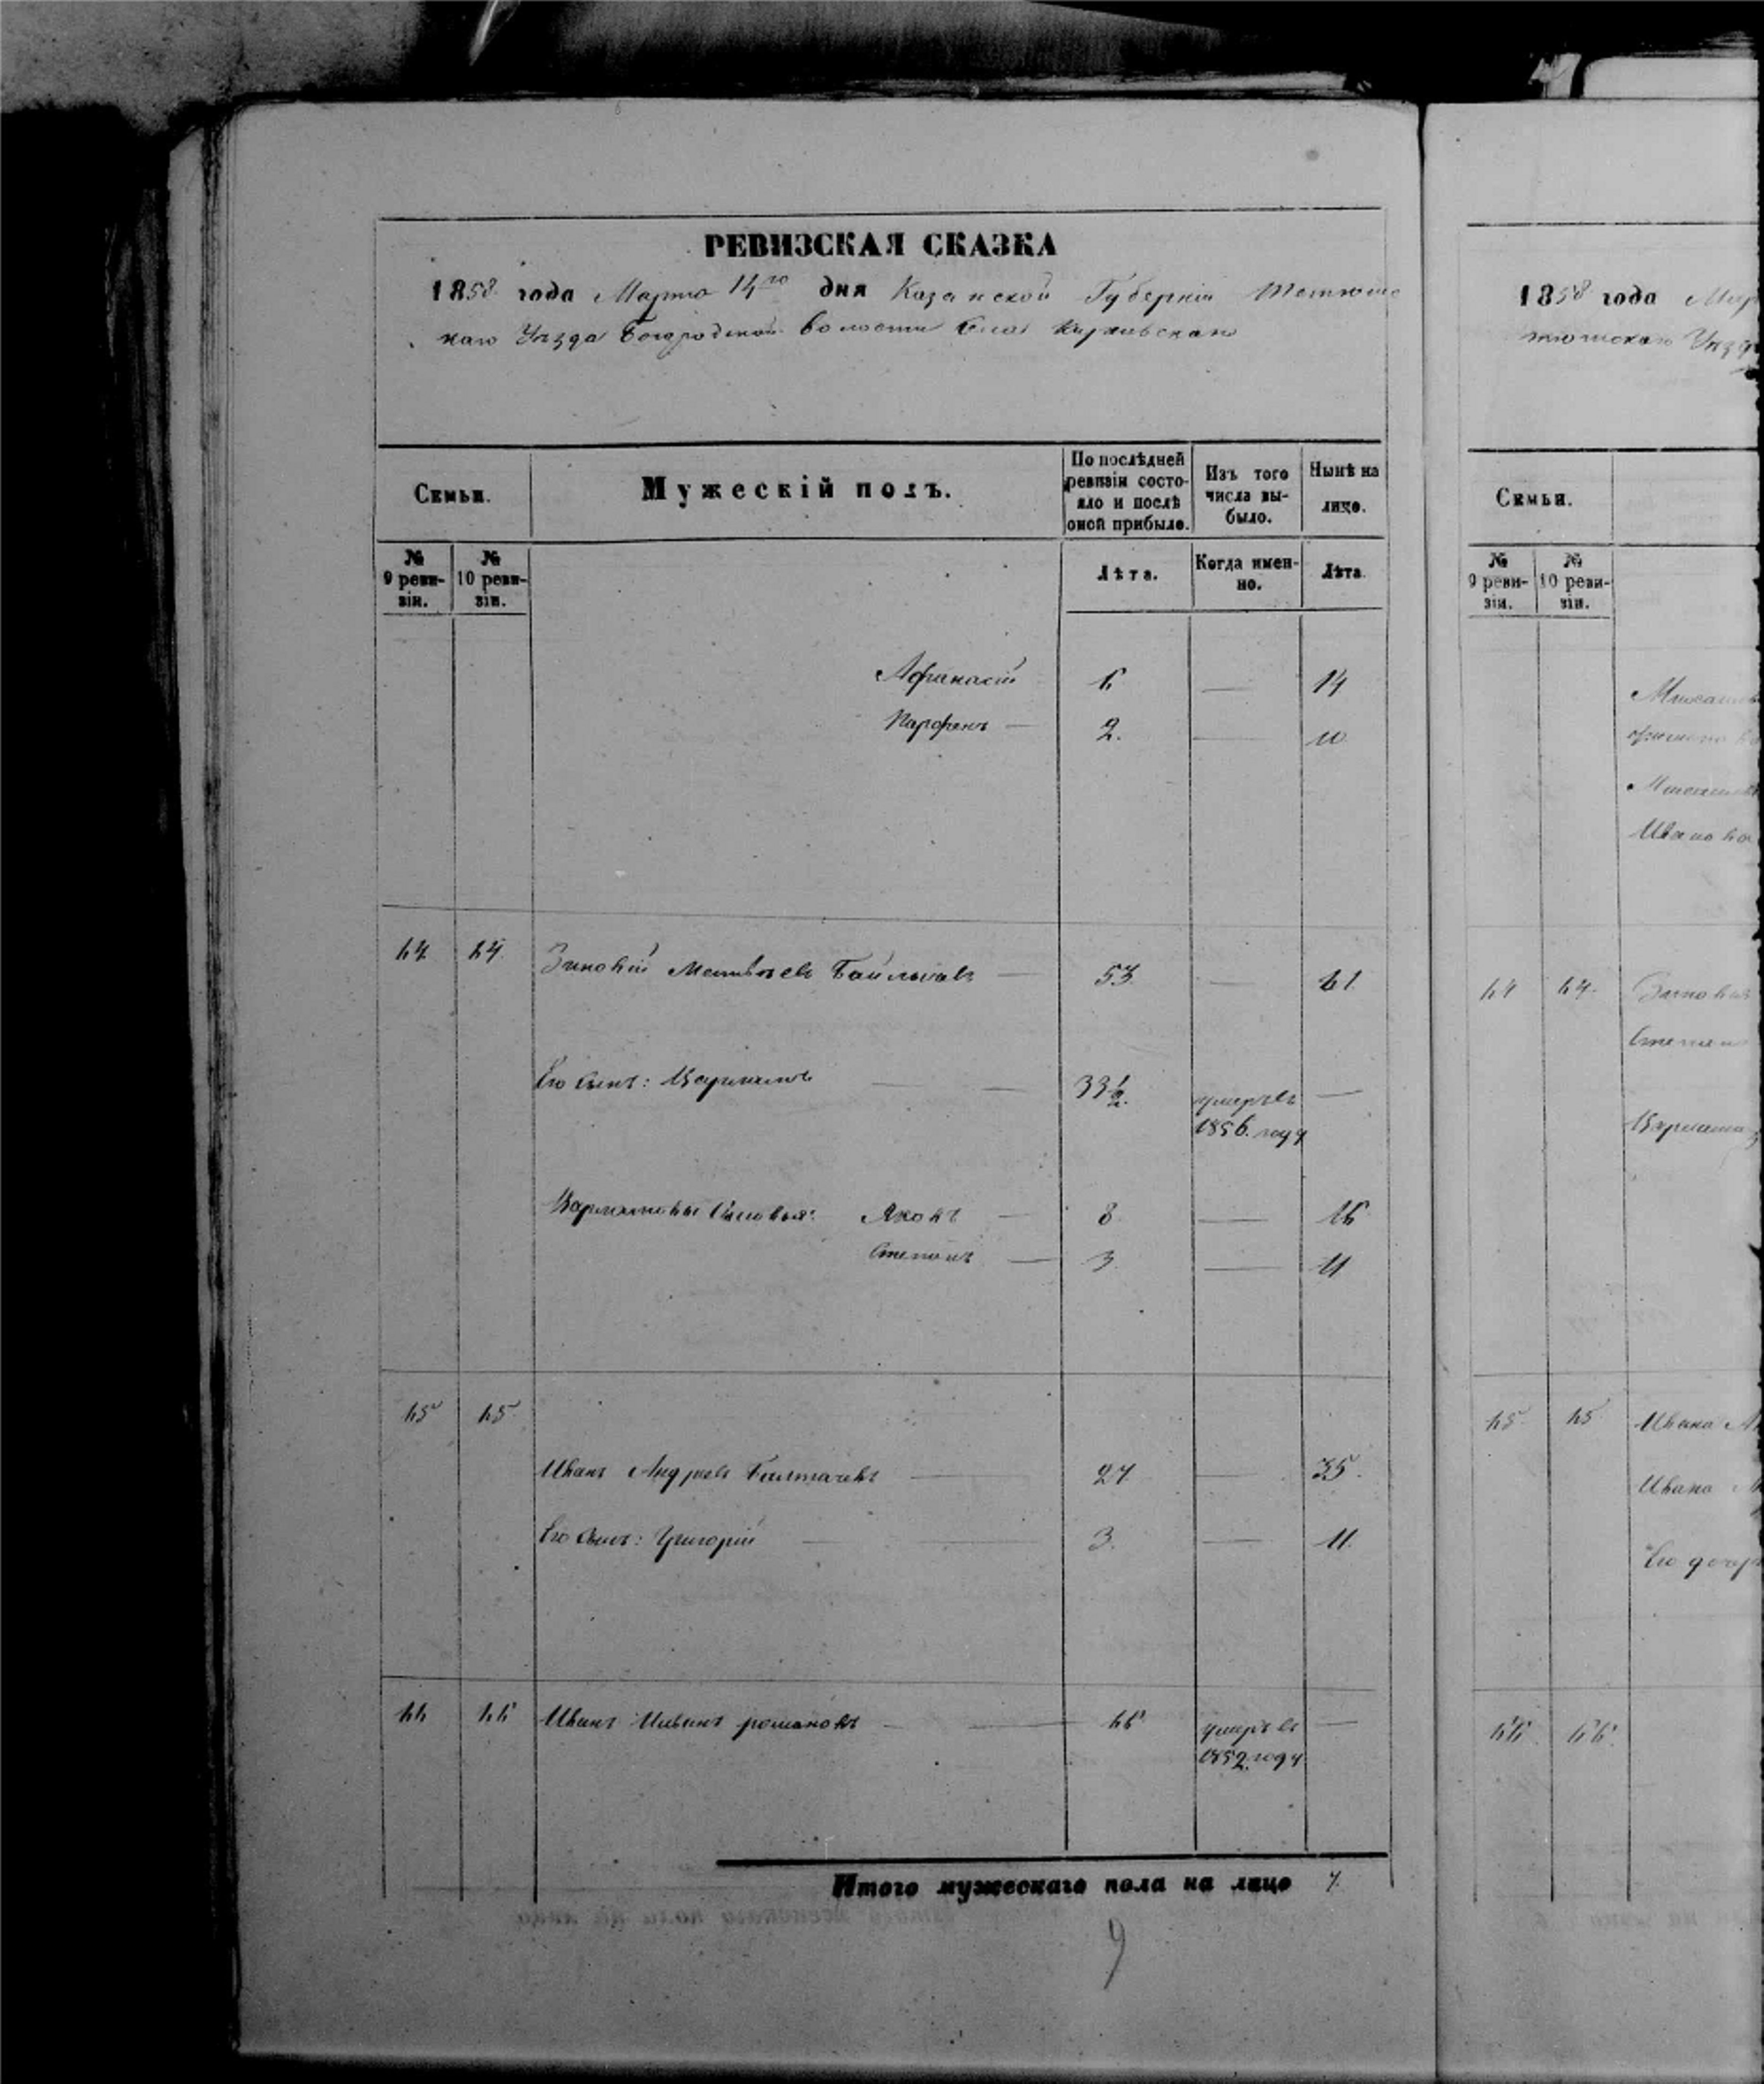 РЕВИЗСКАЯ СКАЗКА
1858 года Марта 14го дня Казанской Губерніи Тетюшс
каго Уѣзда Богородской волости Села
Семьи.
Мужескій полъ.
По послѣдней ревизіи состояло и послѣ оной прибыло.
Изъ того числа выбыло.
Нынѣ на лицо.
№ 9 ревизіи.
№ 10 ревизіи.
Лѣта.
Когда именно.
Лѣта.
Афанасій 6 — 14
Парфенъ — 2. — 10
64 64 Зиновій Матвѣевъ — 53. — 61.
Его сынъ: Варламъ — 33½. умеръ въ —
1856. году
Варламовы Сыновья: Яковъ — 8. — 16
Степанъ — 3. — 11
65 65
Иванъ Андреевъ Балтачевъ — 27 — 35.
Его сынъ: Григорій — 3. — 11.
66 66 Иванъ романовъ — 66 умеръ въ —
1852. году
Итого мужескаго пола на лицо 7.
9
1858 года Мар
тюшскаго Уѣзд
Семьи.
№ 9 ревизіи.
№ 10 ревизіи.
Ивано
64 64.
Степан
Варлама
65 65 Ивана Ан
Ивана
Его дочер
66 66